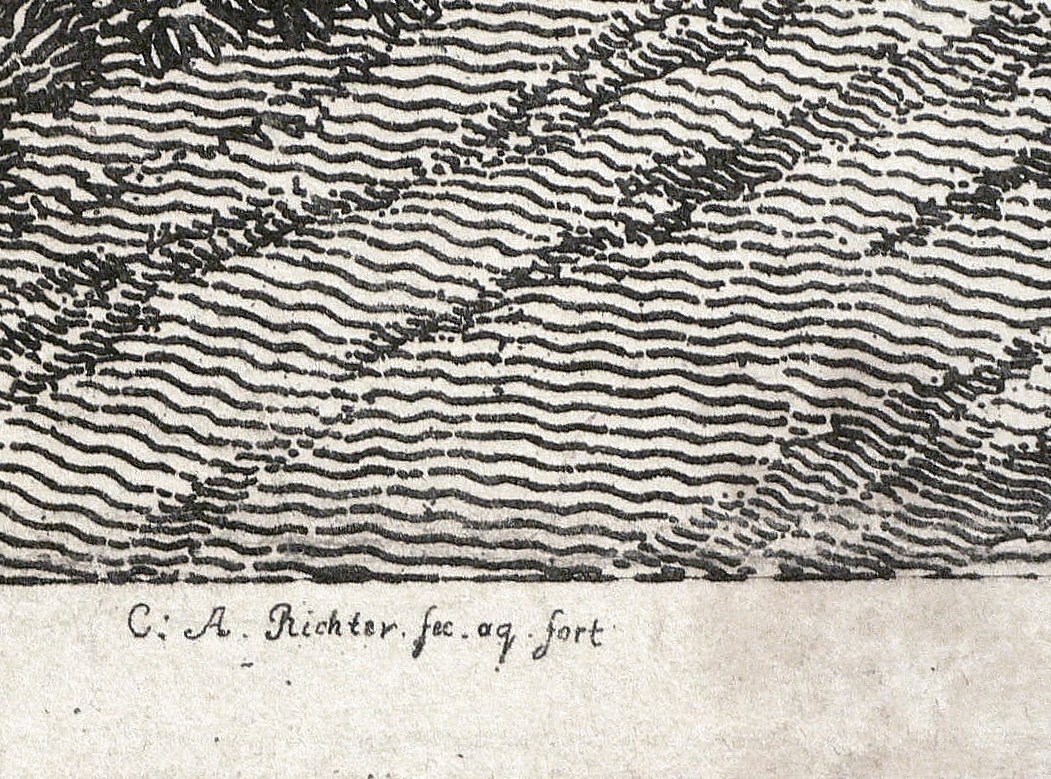 C: A. Richter. fec. aq. fort